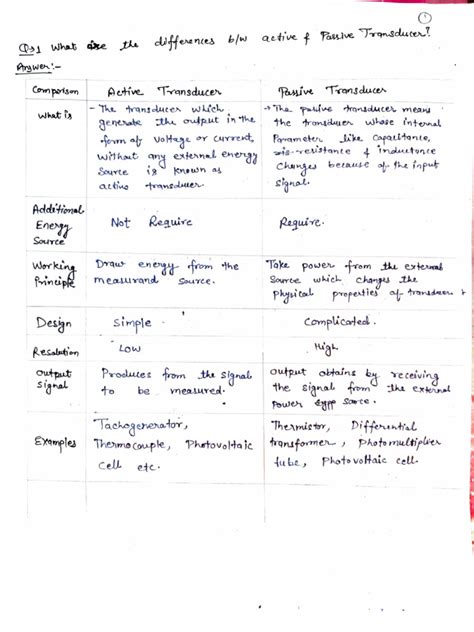 1
Q⇒1 What are the differences b/w active & Passive Transducer?
Answer:-
Comparison
Active Transducer
Passive Transducer
What is
- The transducer which
generate the output in the
form of voltage or current,
without any external energy
source is known as
active transducer.
The passive transducer means
the transducer whose internal
Parameter like Capacitance,
resistance & inductance
Changes because of the input
Signal.
Additional
Energy
Source
Not Require
Require.
Working
Principle
Draw energy from the
measurand source.
Take power from the external
Source which changes the
Physical properties of transducer
Design
Simple
Complicated.
Resolution
Low
High
Output
Signal
Produces from the Signal
to be measured.
Output obtains by receiving
the signal from the external
Power Source.
Examples
Tachogenerator,
Thermocouple, Photovoltaic
Cell etc.
Thermistor, Differential
transformer, Photomultiplier
tube, Photovoltaic cell.